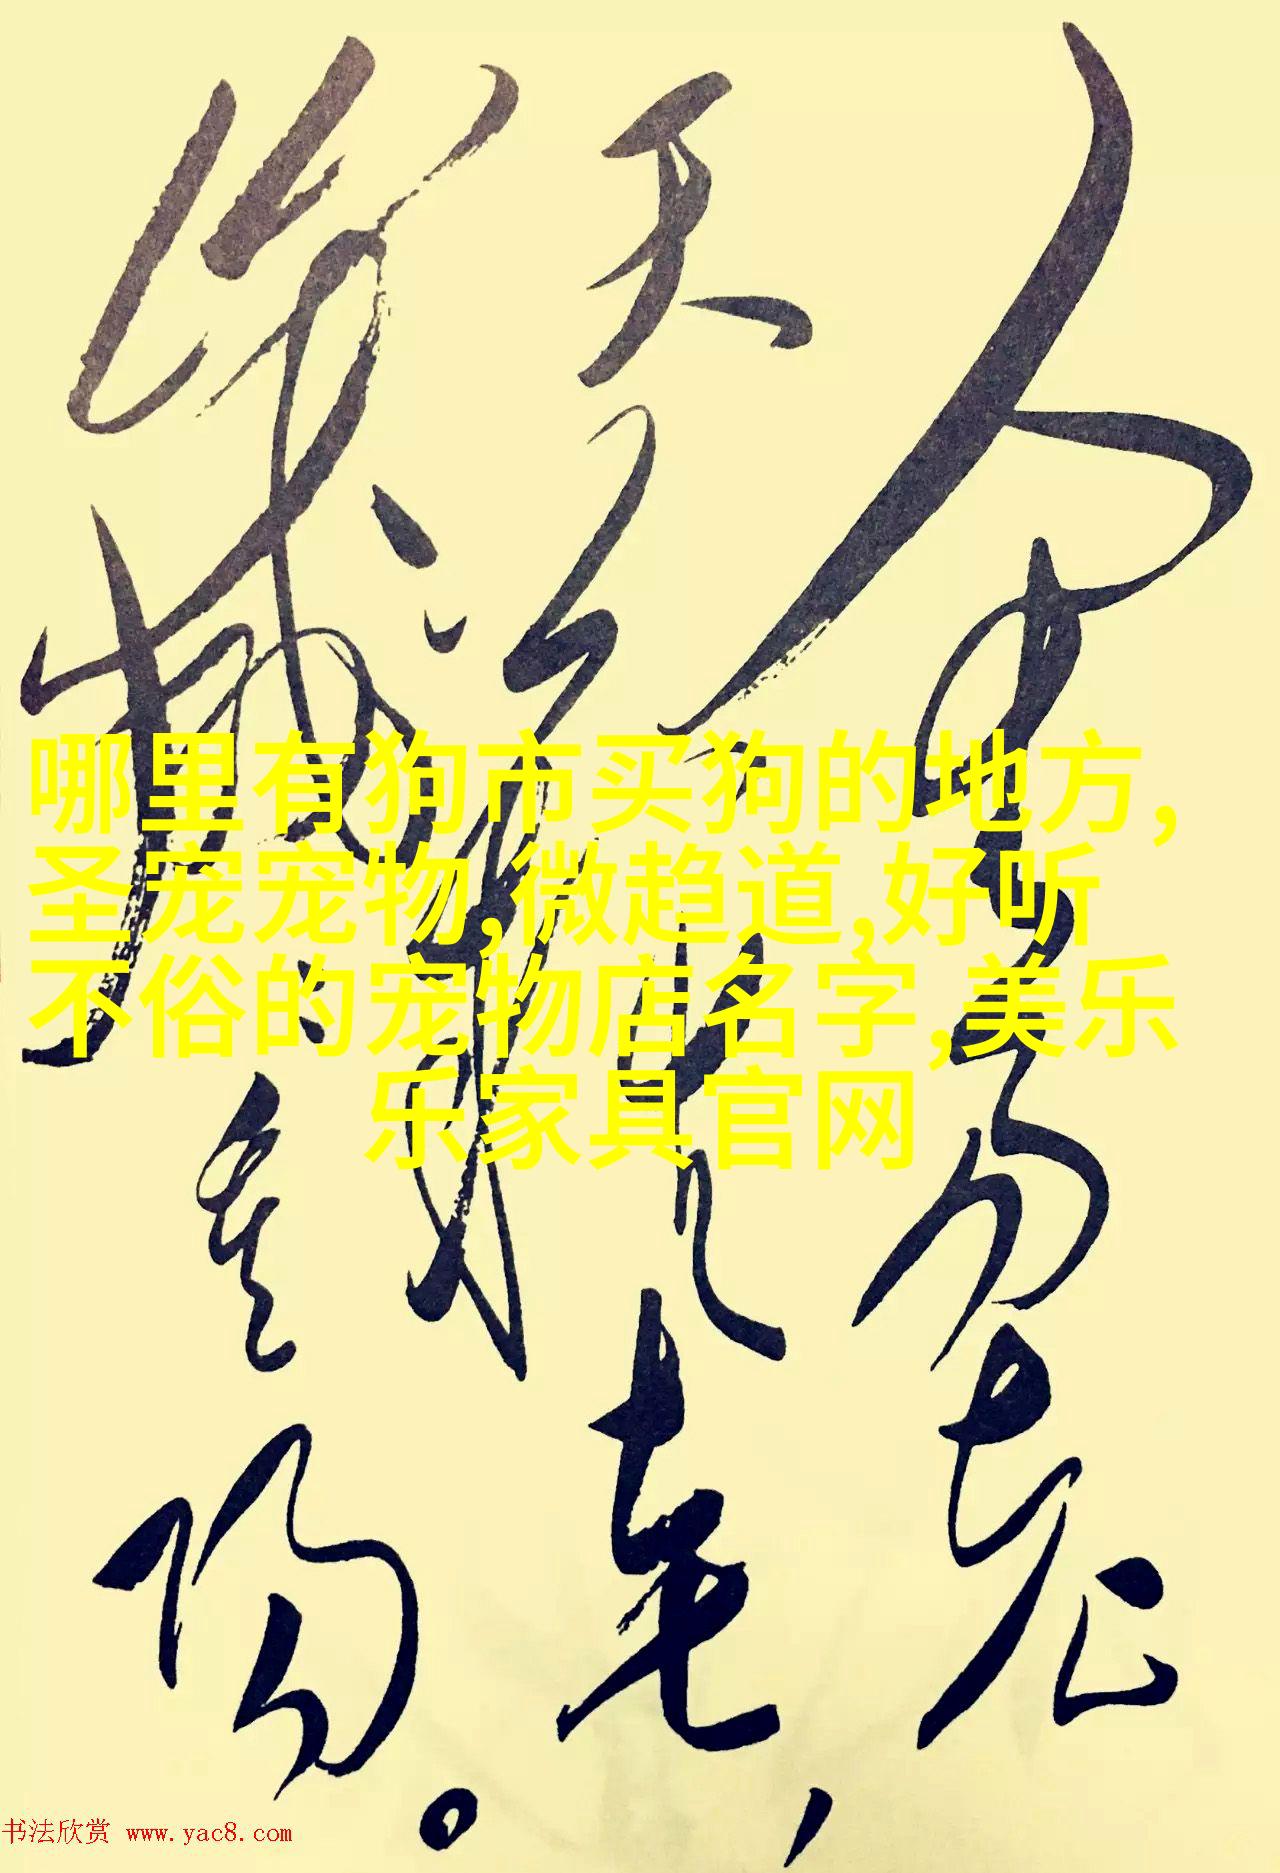 人生易老
天难老，
岁岁重阳。
哪里有狗市买狗的地方,
圣宠宠物,微趋道,好听
不俗的宠物店名字,美乐
乐家具官网
书法欣赏 www.yac8.com